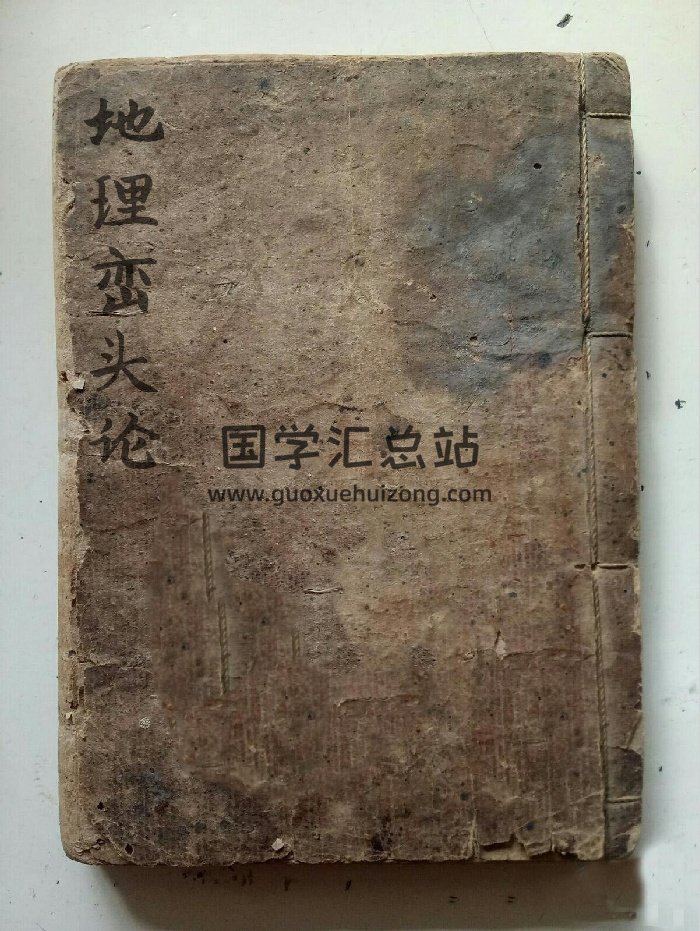 地理峦头论
国学汇总站
www.guoxuehuizong.com